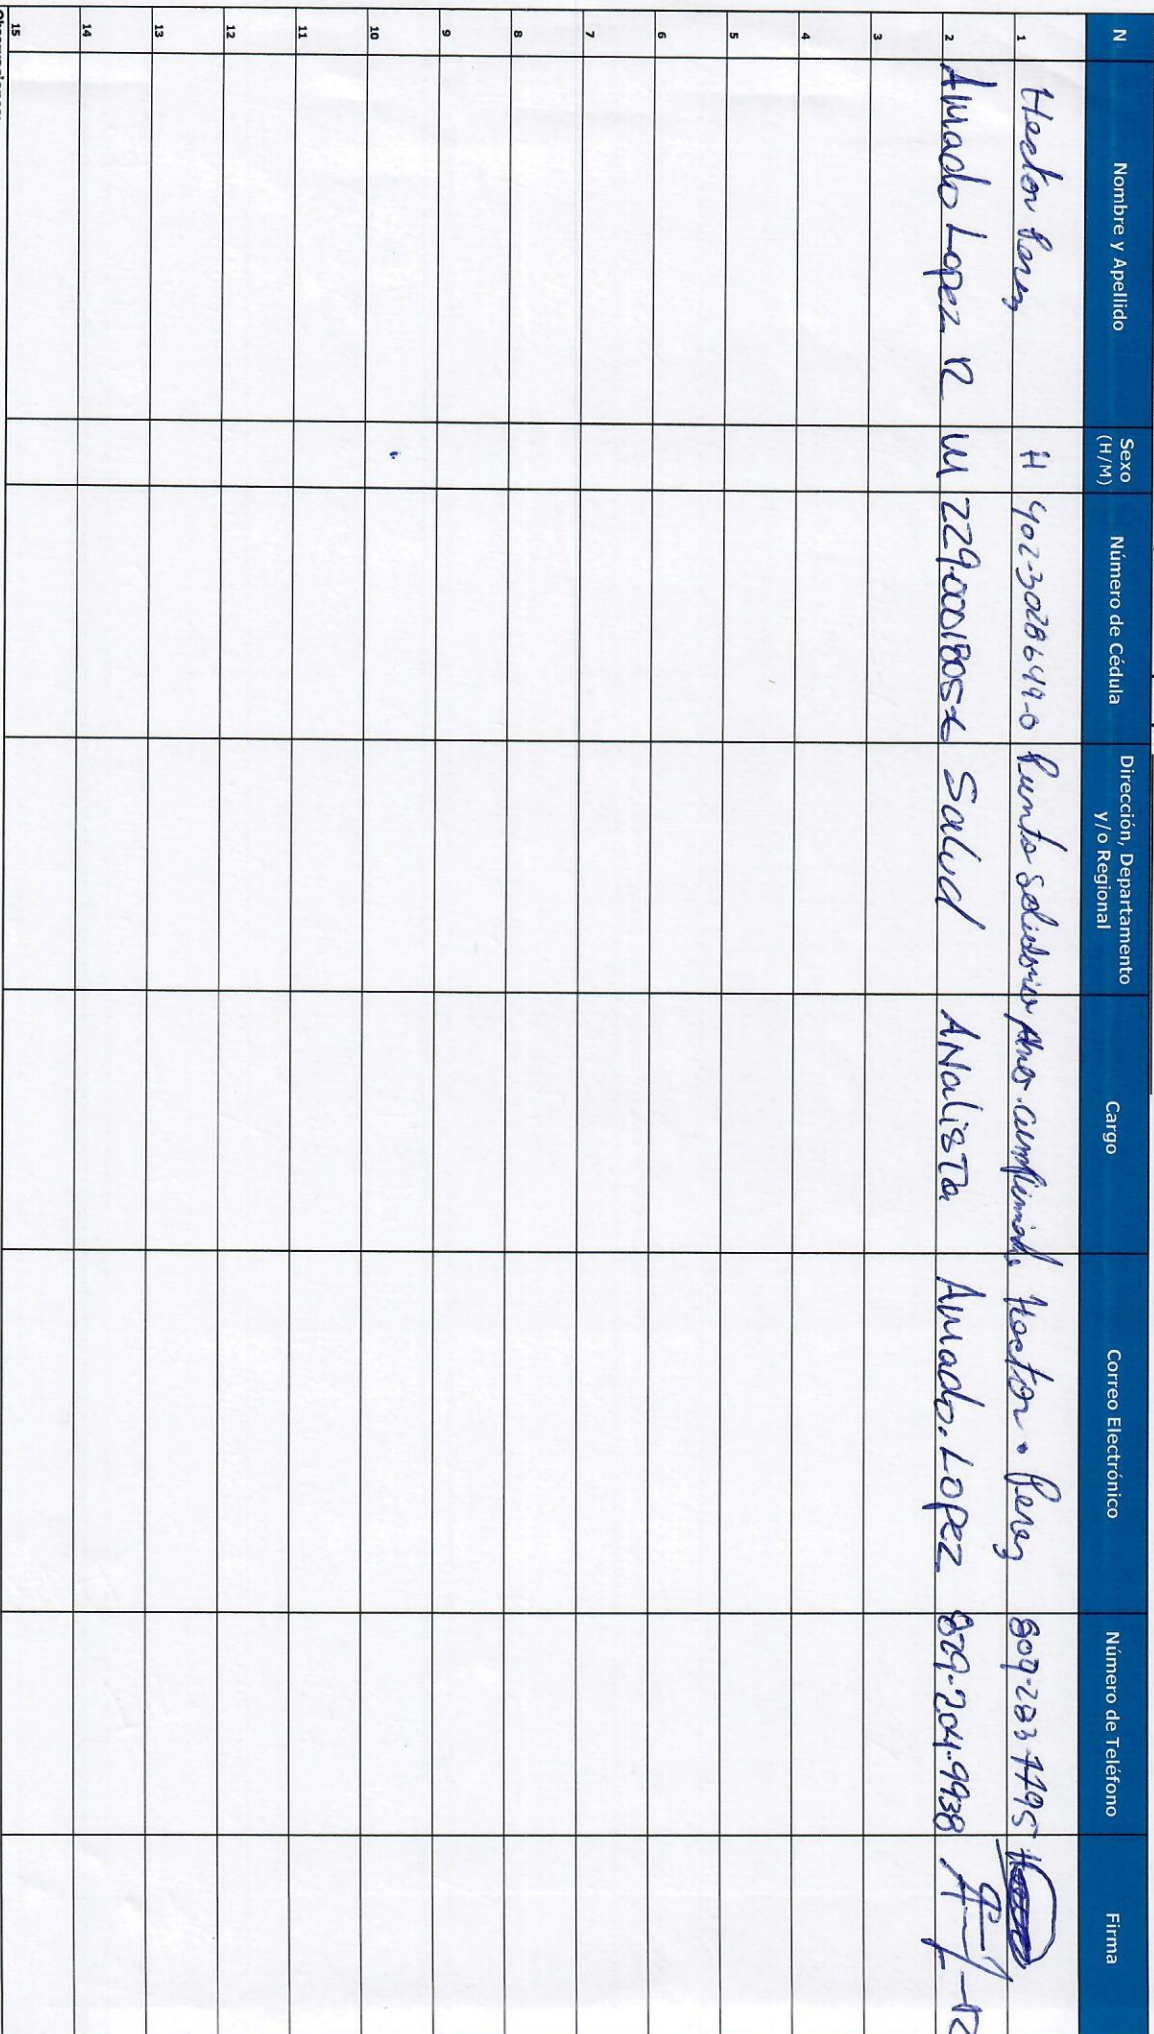 N Nombre y Apellido Sexo (H/M) Número de Cédula Dirección, Departamento y/o Regional Cargo Correo Electrónico Número de Teléfono Firma
1 Hector Perez H 402-3028649-0 Punto Solidario Hector. Perez 809-283-7795
2 Amado Lopez R M 229.0001805-6 Salud ANalista Amado.Lopez 829-204-9938
3
4
5
6
7
8
9
10
11
12
13
14
15
Observaciones: